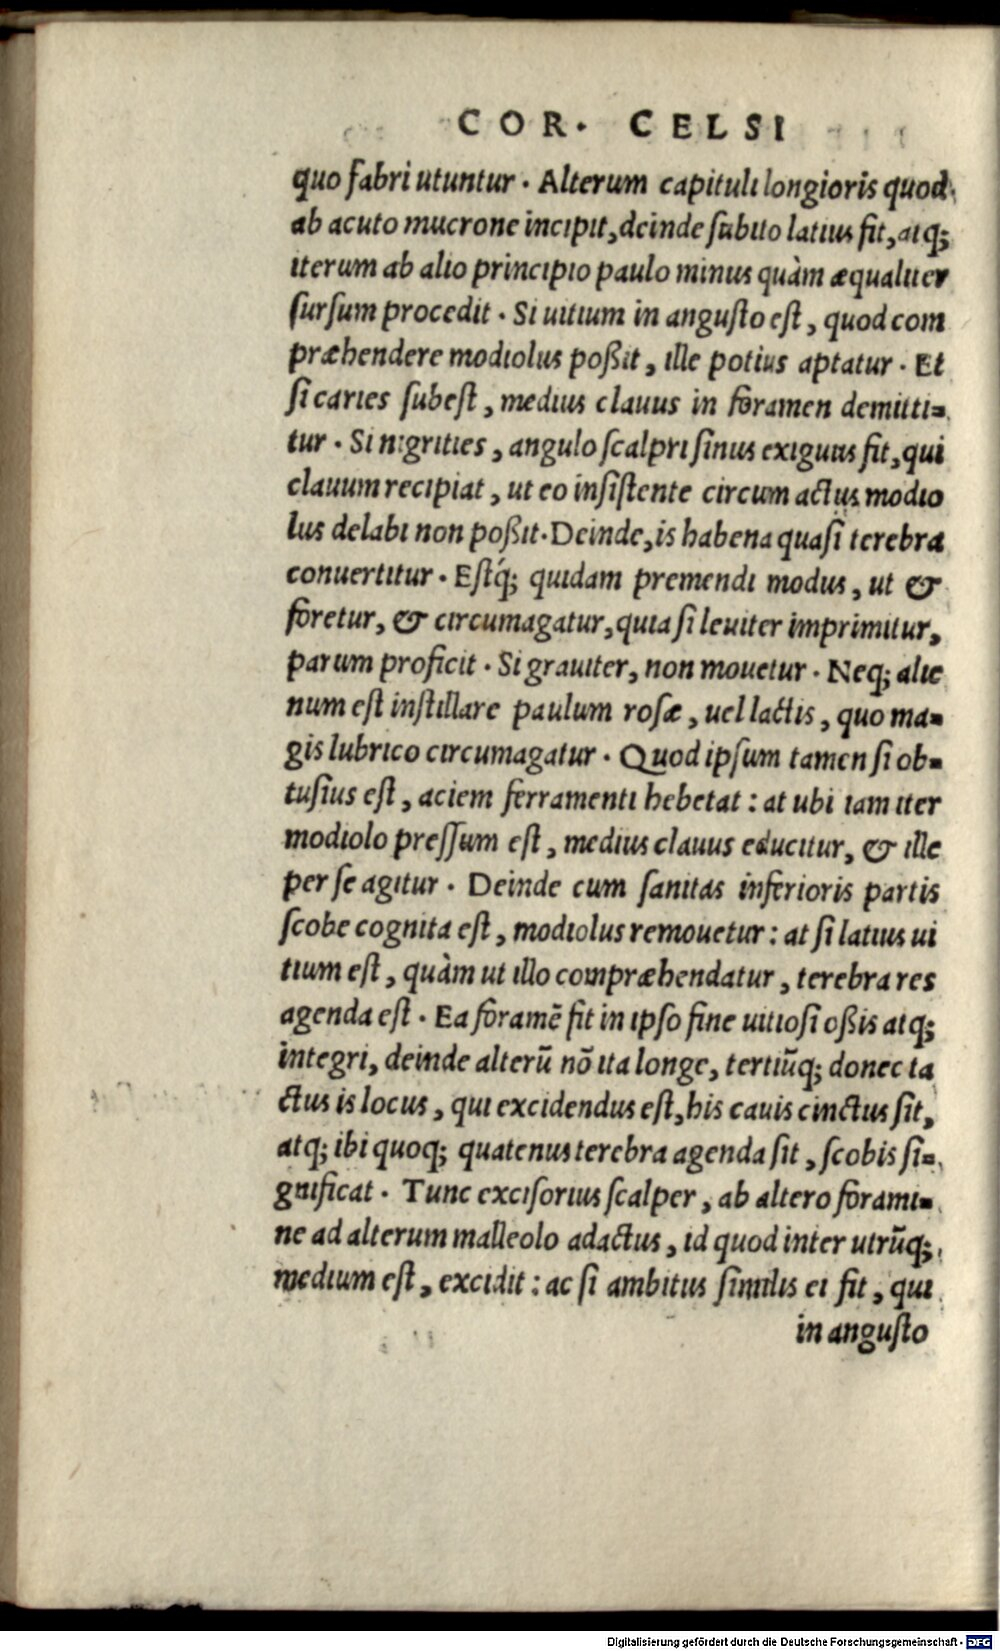 COR. CELSI
quo fabri utuntur. Alterum capituli longioris quod
ab acuto mucrone incipit, deinde ſubito latius fit, atq;
iterum ab alio principio paulo minus quàm æqualiter
ſurſum procedit. Si uitium in anguſto eſt, quod com
præhendere modiolus poßit, ille potius aptatur. Et
ſi caries ſubeſt, medius clauus in foramen demitti=
tur. Si nigrities, angulo ſcalpri ſinus exiguus fit, qui
clauum recipiat, ut eo inſiſtente circum actus modio
lus delabi non poßit. Deinde, is habena quaſi terebra
conuertitur. Eſtq́; quidam premendi modus, ut &
foretur, & circumagatur, quia ſi leuiter imprimitur,
parum proficit. Si grauiter, non mouetur. Neq; alie
num eſt inſtillare paulum roſæ, uel lactis, quo ma=
gis lubrico circumagatur. Quod ipſum tamen ſi ob=
tuſius eſt, aciem ferramenti hebetat: at ubi iam iter
modiolo preſſum eſt, medius clauus educitur, & ille
per ſe agitur. Deinde cum ſanitas inferioris partis
ſcobe cognita eſt, modiolus remouetur: at ſi latius ui
tium eſt, quàm ut illo compræhendatur, terebra res
agenda eſt. Ea foramē fit in ipſo fine uitioſi oßis atq;
integri, deinde alterū nō ita longe, tertiūq; donec ta
ctus is locus, qui excidendus eſt, his cauis cinctus ſit,
atq; ibi quoq; quatenus terebra agenda ſit, ſcobis ſi=
gnificat. Tunc exciſorius ſcalper, ab altero forami=
ne ad alterum malleolo adactus, id quod inter utrūq;
medium eſt, excidit: ac ſi ambitus ſimilis ei fit, qui
in anguſto
Digitalisierung gefördert durch die Deutsche Forschungsgemeinschaft - DFG